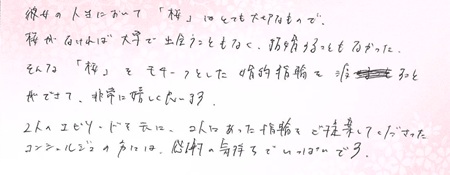 彼女の人生において「桜」はとても大切なもので、
桜がなければ大学で出会うこともなく、結婚することもなかった。
そんな「桜」をモチーフとした婚約指輪を渡すこと
ができて、非常に嬉しく思います。
2人のエピソードを元に、2人にあった指輪をご提案してくださった
コンシェルジュの方には、感謝の気持ちでいっぱいです。